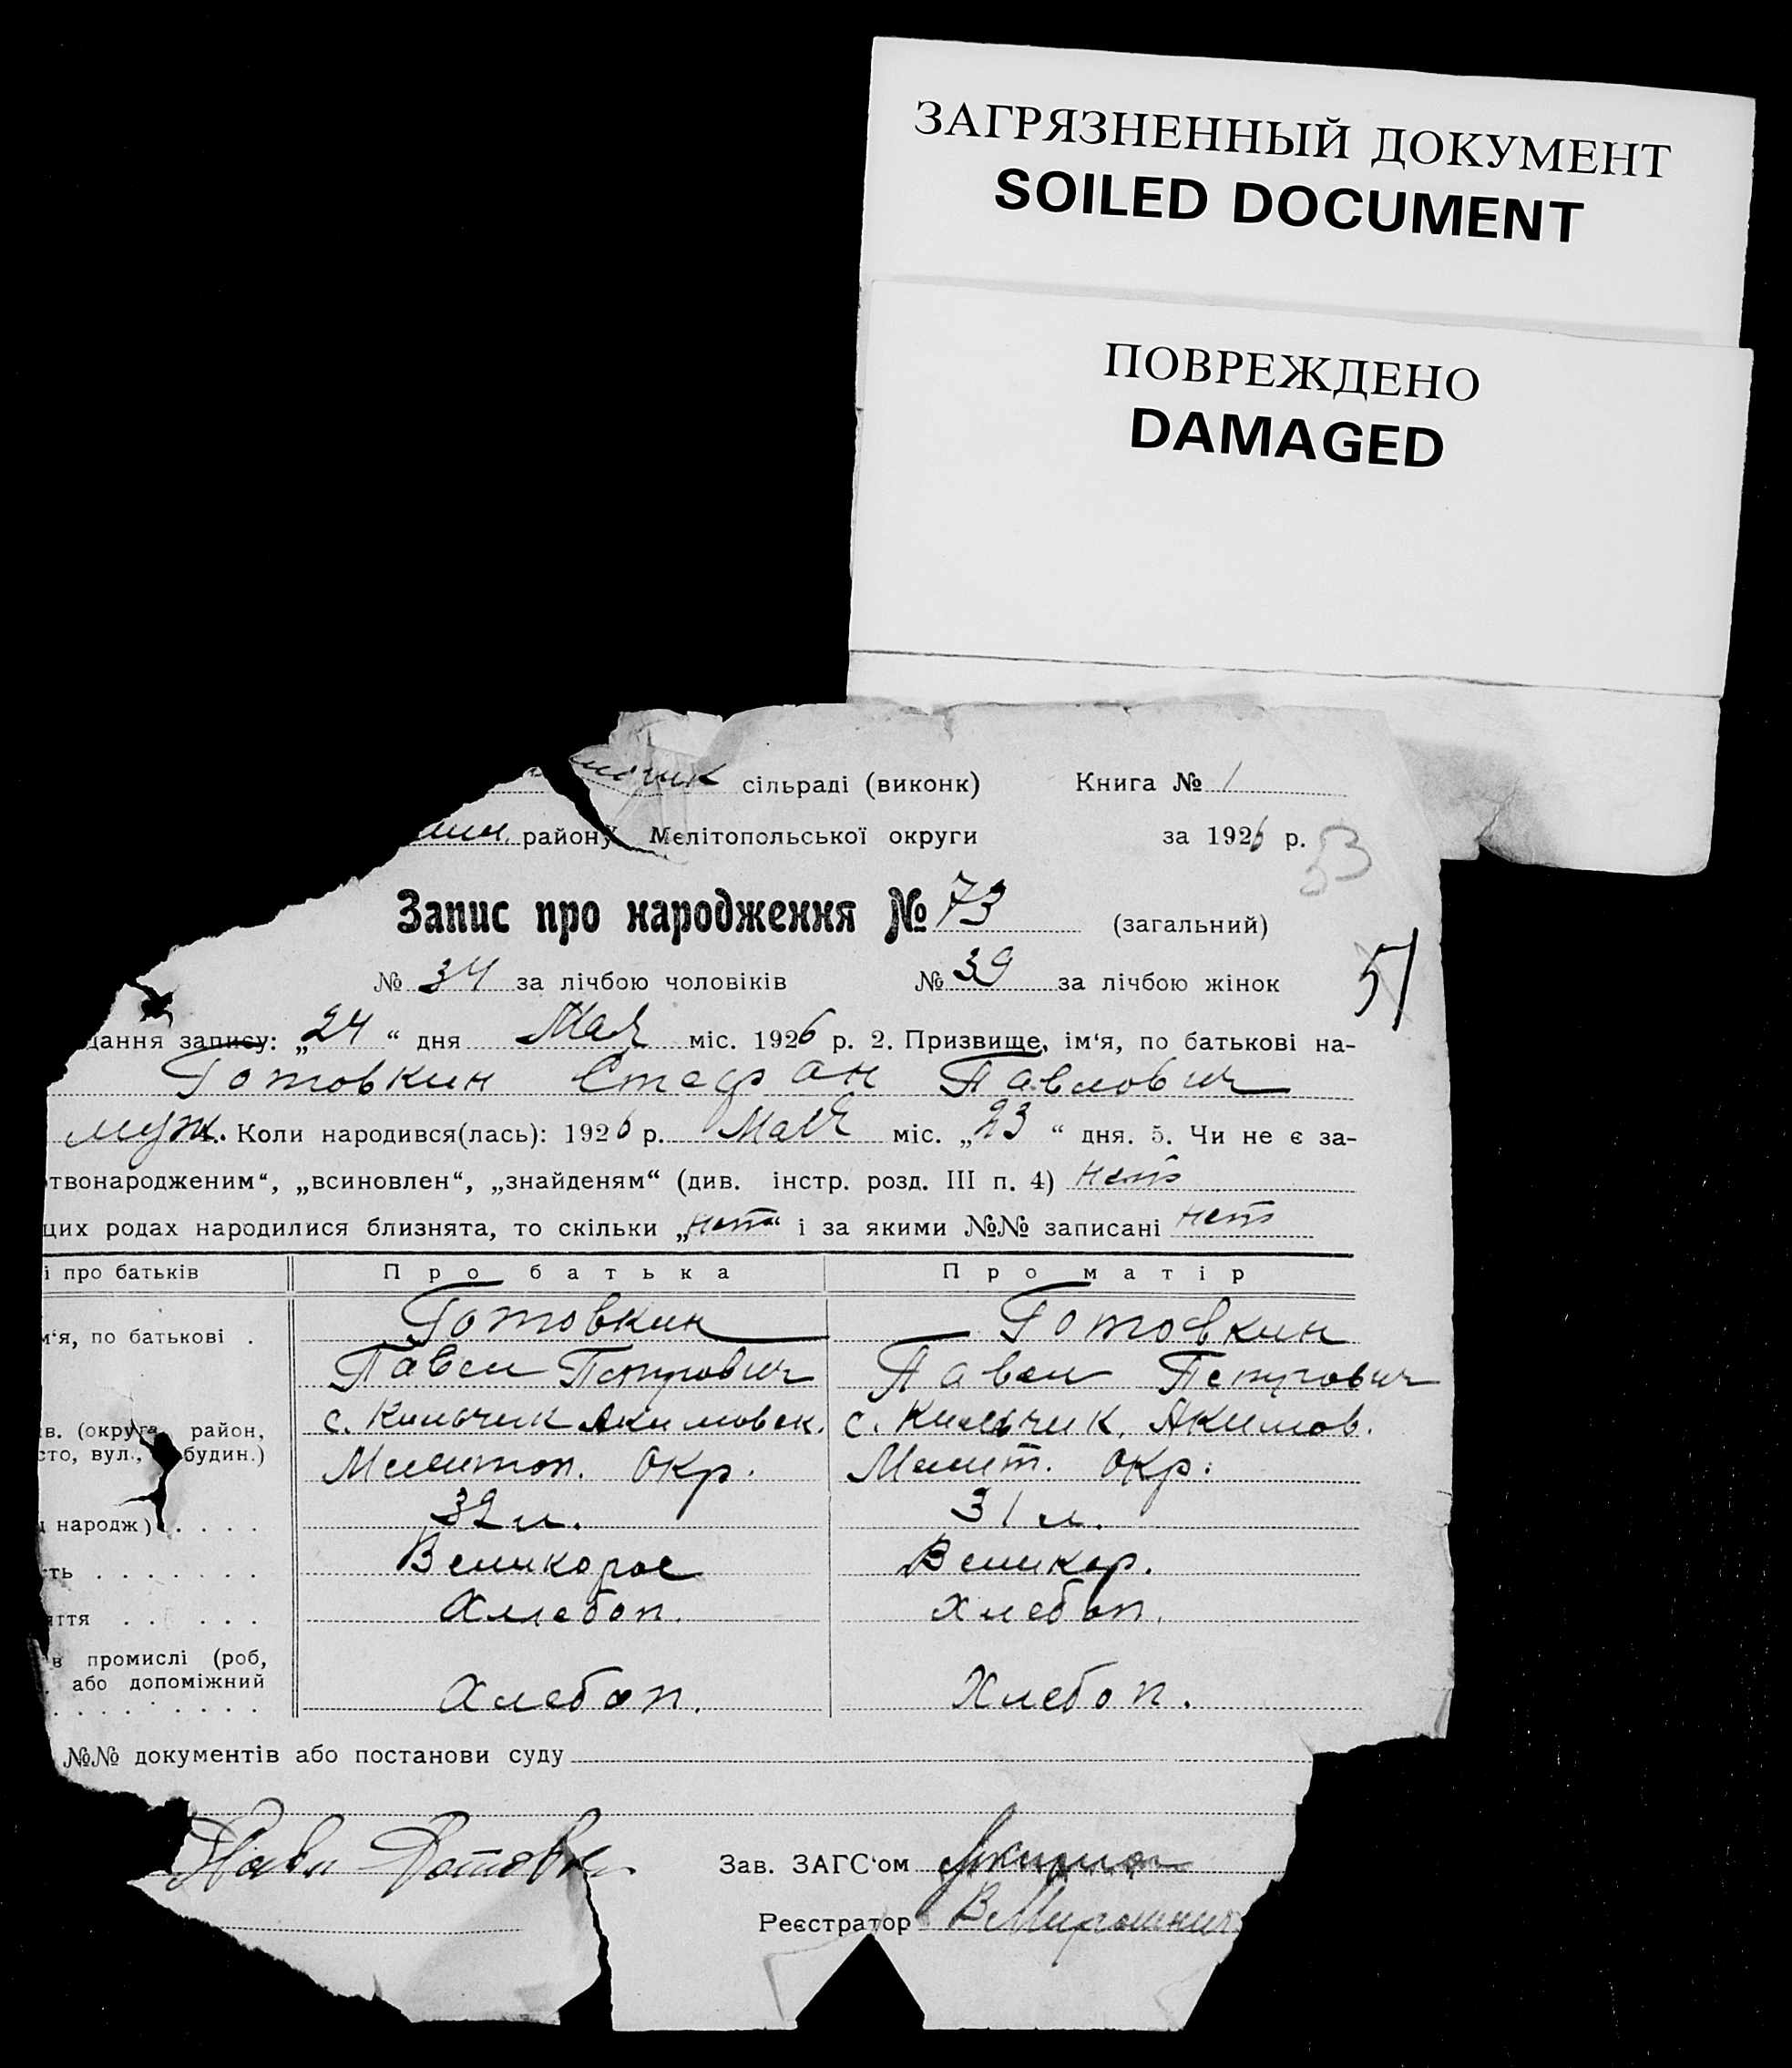 ЗАГРЯЗНЕННЫЙ ДОКУМЕНТ
SOILED DOCUMENT
ПОВРЕЖДЕНО
DAMAGED
сільраді (виконк) Книга № 1
району Мелітопольської округи за 1926 р.
53
Запис про народження № 73 (загальний)
№ 34 за лічбою чоловіків № 39 за лічбою жінок
51
дання запису: „24“ дня Мая міс. 1926 р. 2. Призвище, ім‘я, по батькові на-
Готовкин Стефан Павлович
муж. Коли народився(лась): 1926 р. Мая міс. „23“ дня. 5. Чи не є за-
твонародженим“, „всиновлен“, „знайденям“ (див. інстр. розд. III п. 4) нет
цих родах народилися близнята, то скільки „нет“ і за якими №№ записані нет
і про батьків Про батька Про матір
м‘я, по батькові . Готовкин Готовкин
Павел Петрович Павел Петрович
в. (округа, район, с. Кильчик Акимовск. с. Кильчик, Акимов.
сто, вул., будин.) Мелитоп. Окр. Мелит. Окр.
народж) . . . . 32 л. 31 л.
сть . . . . . . . Великорос Великор.
яття . . . . . Хлебоп. Хлебоп.
в промислі (роб,
або допоміжний
Хлебоп. Хлебоп.
№№ документів або постанови суду
Зав. ЗАГС‘ом
Реєстратор В Мирошнич